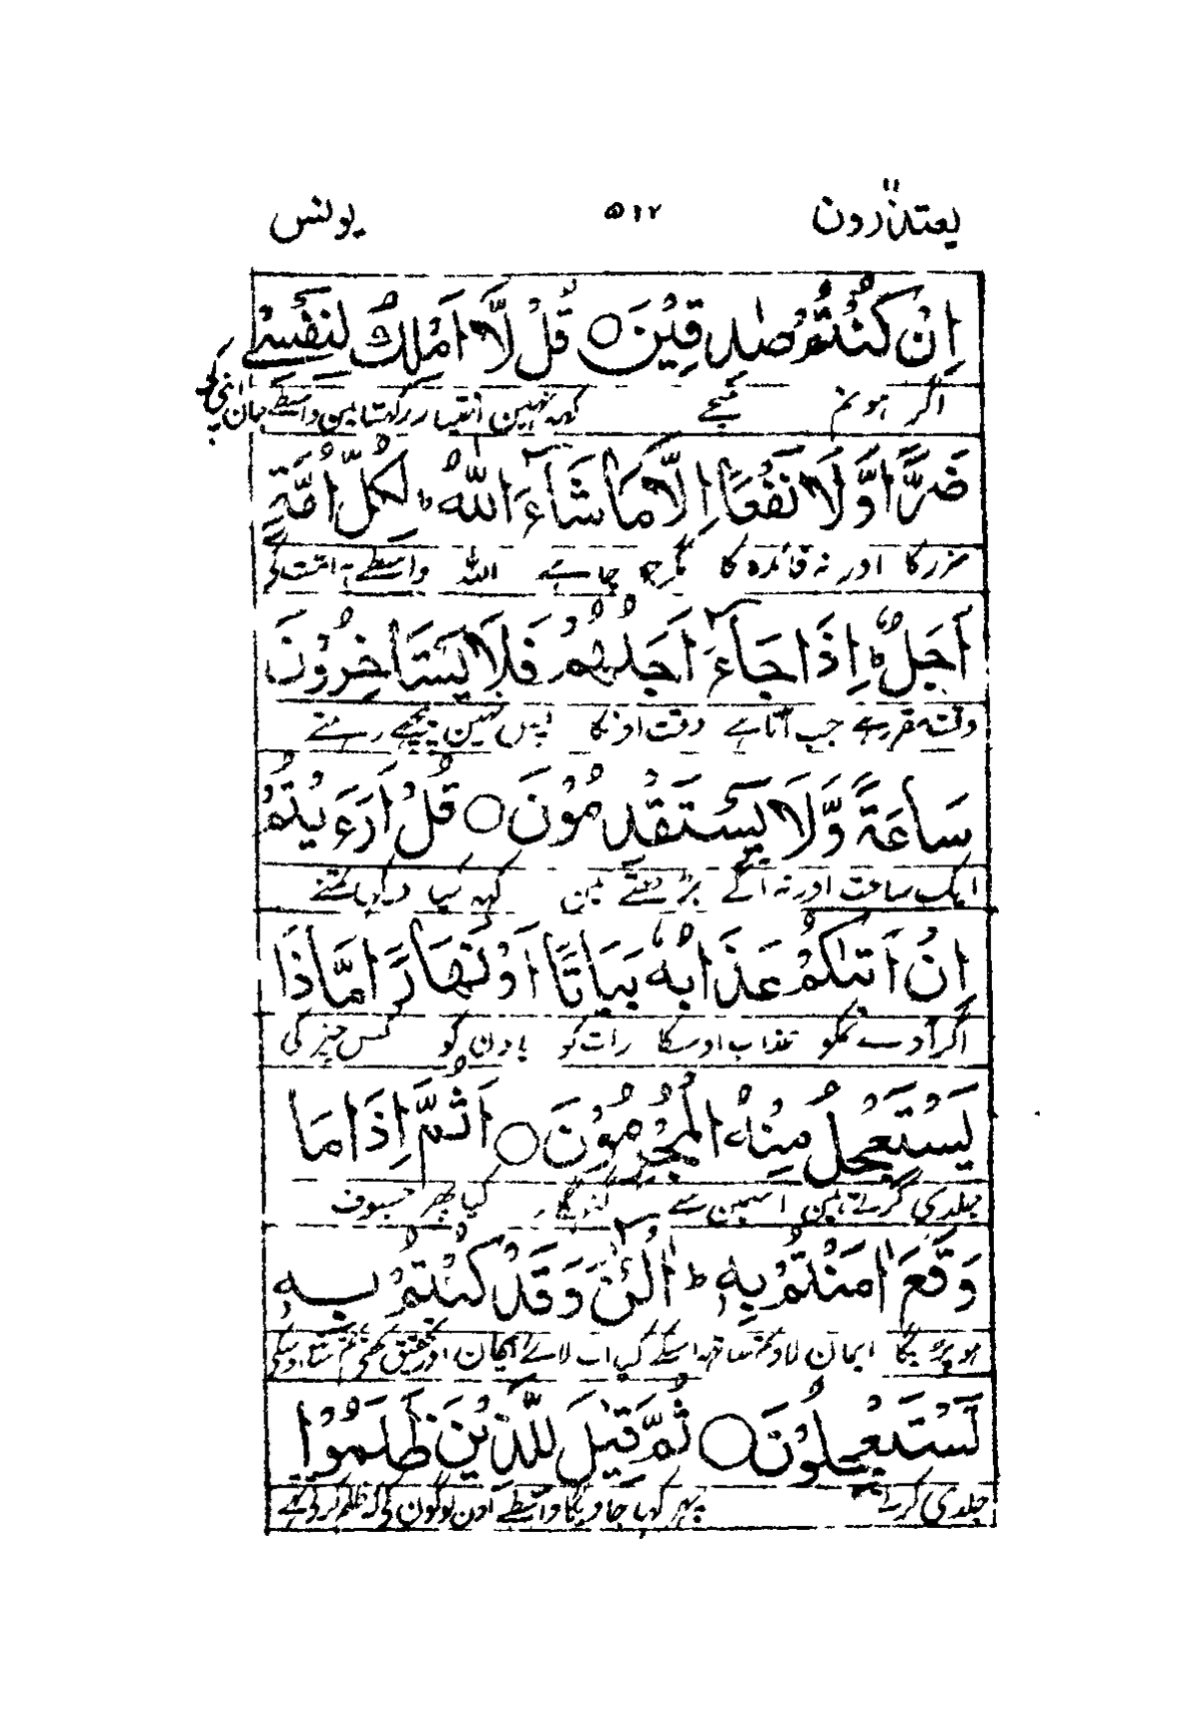 یعتذرون ۱۱ ۵۱۲ یونس
اِنْ كُنْتُمْ صٰدِقِيْنَ ○ قُلْ لَّاۤ اَمْلِكُ لِنَفْسِيْ
اگر ہو تم سچے کہہ نہین اختیار رکھتا مین واسطے جان اپنی کے
ضَرًّا وَّلَا نَفْعًا اِلَّا مَا شَآءَ اللّٰهُ ؕ لِكُلِّ اُمَّةٍ
ضرر کا اور نہ فائدہ کا مگر جو چاہے اللہ واسطے ہر امت کے
اَجَلٌ ؕ اِذَا جَآءَ اَجَلُهُمْ فَلَا يَسْتَاْخِرُوْنَ
وقت مقرر ہے جب آتا ہے وقت اونکا پس نہین پیچھے رہتے
سَاعَةً وَّلَا يَسْتَقْدِمُوْنَ ○ قُلْ اَرَءَيْتُمْ
ایک ساعت اور نہ آگے بڑھتے ہین کہہ کیا دیکھا تمنے
اِنْ اَتٰىكُمْ عَذَابُهٗ بَيَاتًا اَوْ نَهَارًا مَّاذَا
اگر آوے تمکو عذاب اوسکا رات کو یا دن کو کس چیز کی
يَسْتَعْجِلُ مِنْهُ الْمُجْرِمُوْنَ ○ اَثُمَّ اِذَا مَا
جلدی کرتے ہین اسمین سے گنہگار کیا پھر جسوقت
وَقَعَ اٰمَنْتُمْ بِهٖ ؕ آٰلْـٰٔنَ وَقَدْ كُنْتُمْ بِهٖ
ہو پڑیگا ایمان لاوگے ساتھ اسکے کیا اب لائے ایمان اور تحقیق تھے تم ساتھ اوسکی
تَسْتَعْجِلُوْنَ ○ ثُمَّ قِيْلَ لِلَّذِيْنَ ظَلَمُوْا
جلدی کرتے پھر کہا جاویگا واسطے اون لوگون کے کہ ظلم کرتے تھے